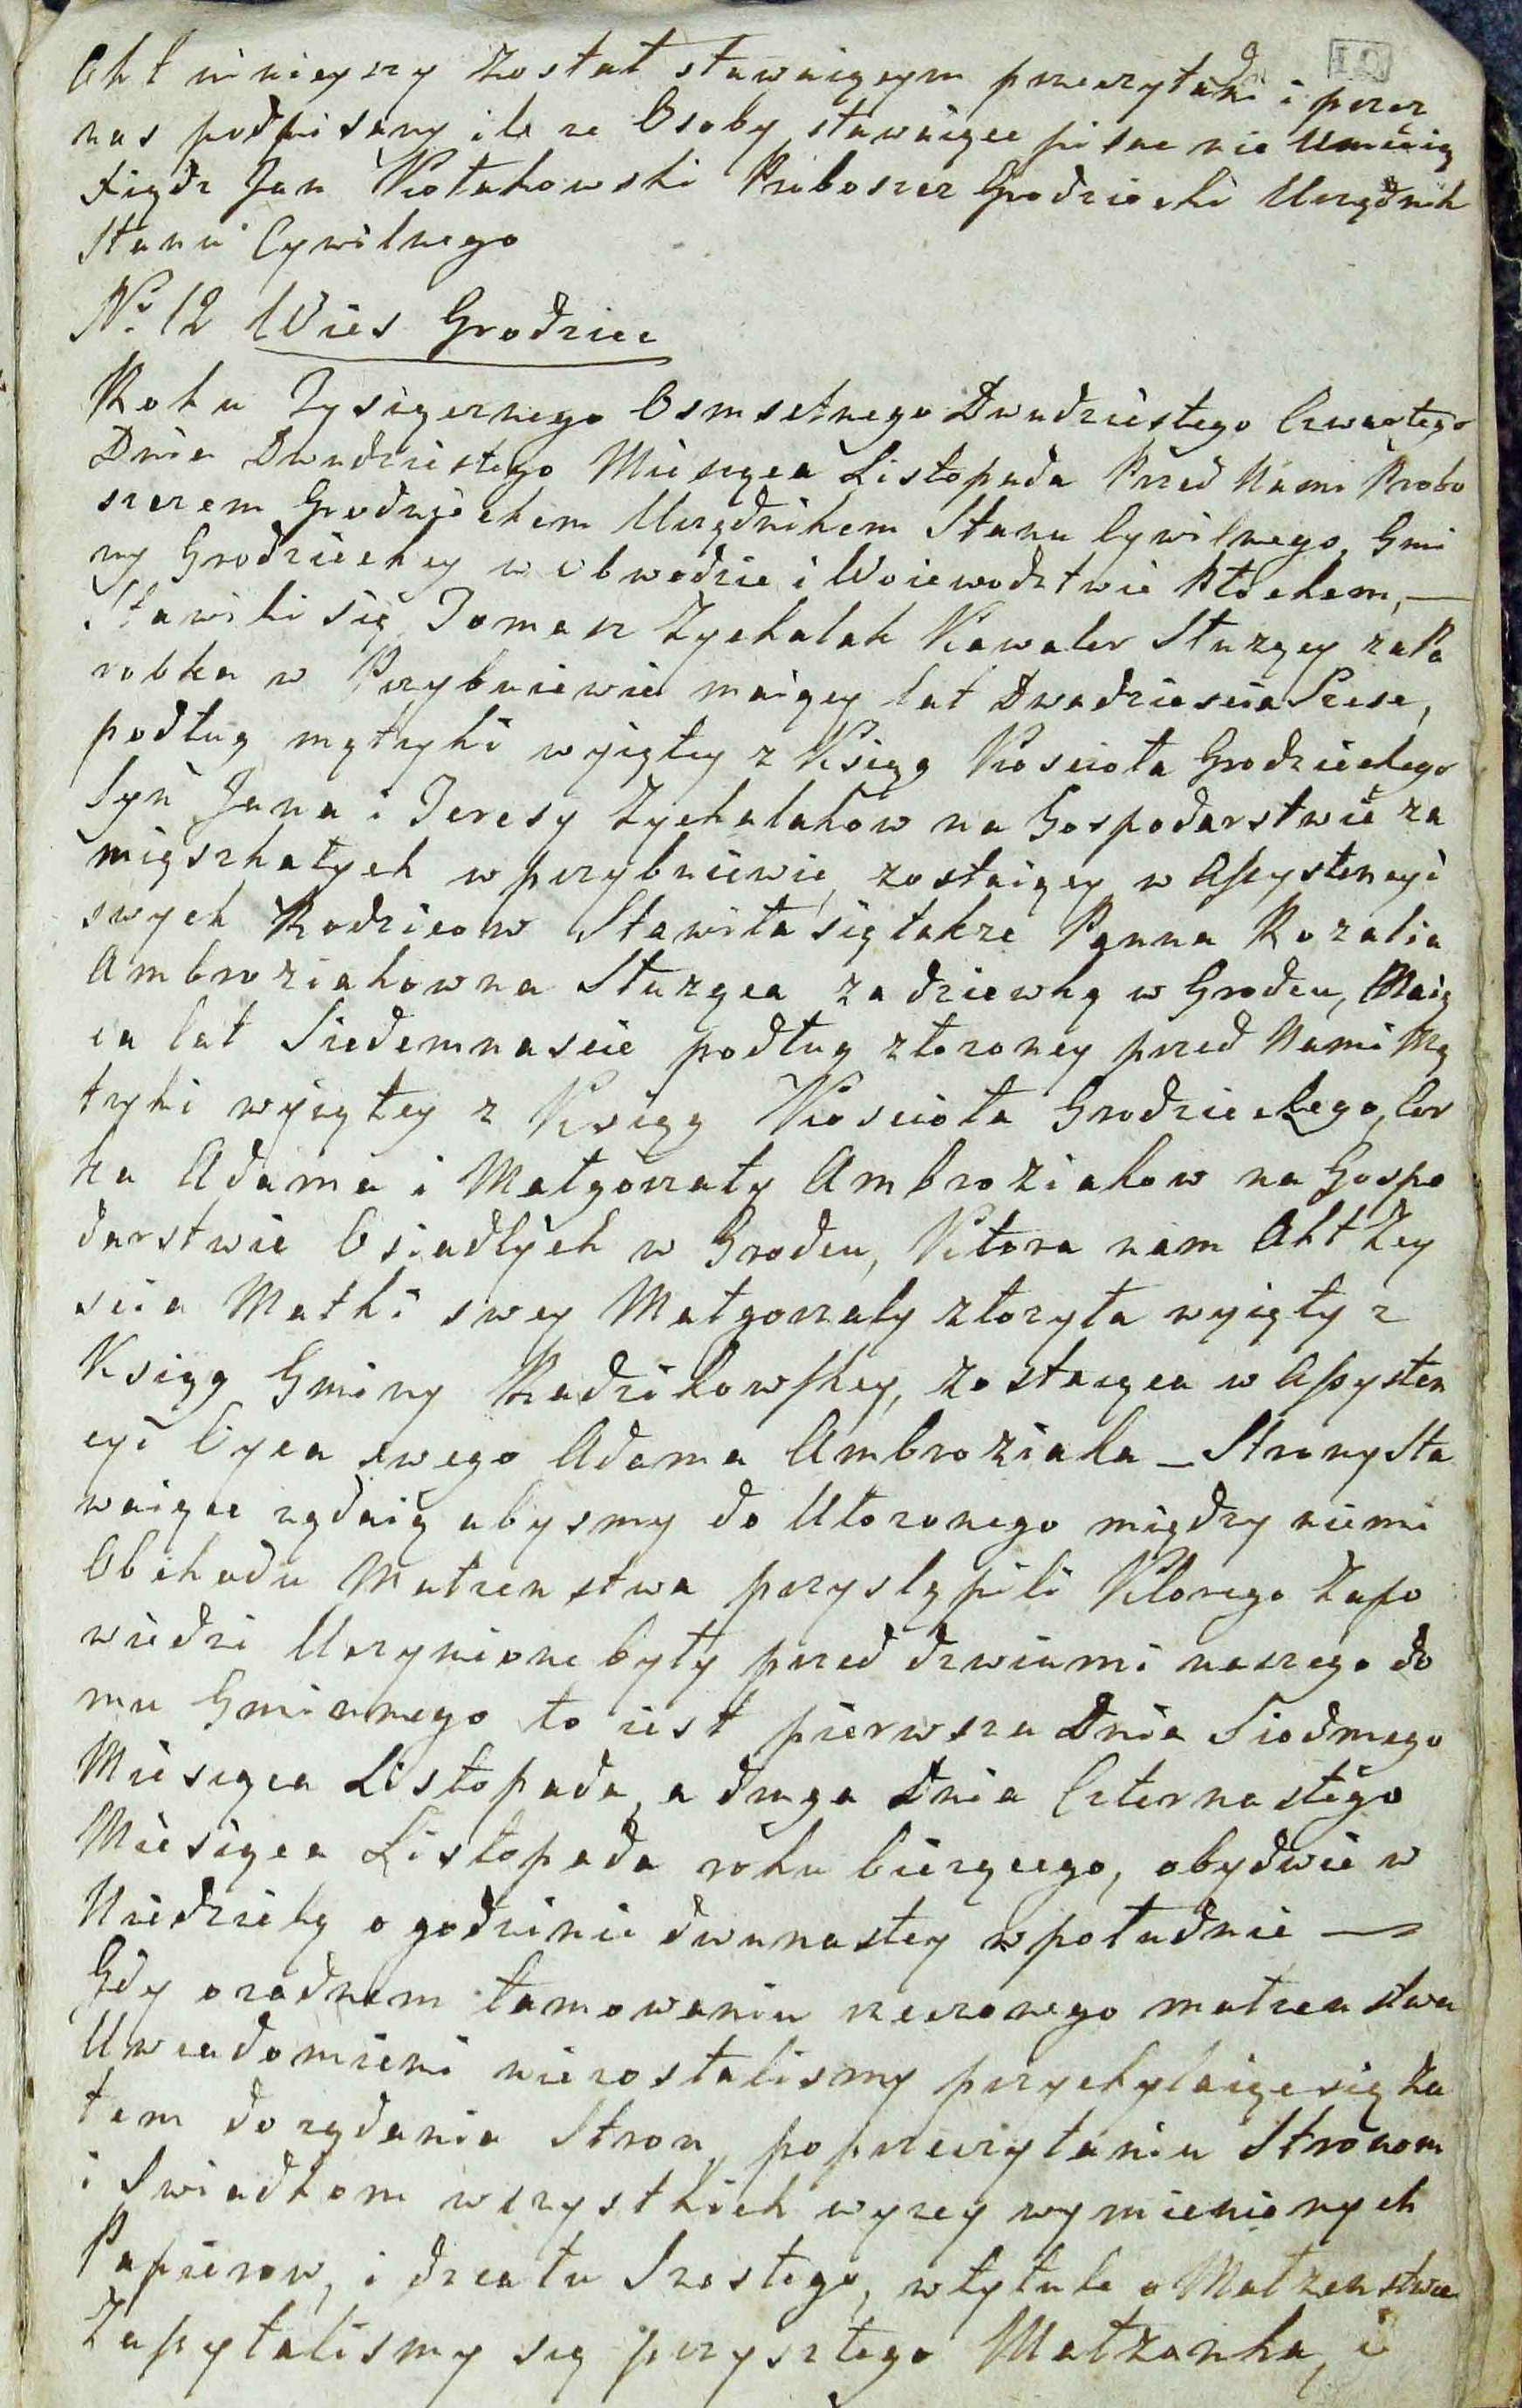 Akt ninieyszy został stawaiącym przeczytani i przez
nas podpisany ile ze Osoby stawaiące pisac nie Umieią
Xiądz Jan Kołakowski Proboszcz Grodziecki Urzędnik
Stanu Cywilnego
No. 12 Wies Grodziec
Roku Tysiącznego Osmsetnego Dwudziestego Czwartego
Dnia Dwudziestego Miesiąca Listopada Przed Nami Probo
szczem Grodzieckem Urzędnikem Stanu Cywilnego Gmi
ny Grodzieckey w obwodzie i Woiewodztwie Płockem, —
Stawili się Tomasz Zychalak Kawaler Słuzący za Pa
robka w Przybuiewie maiący lat Dwadziescia Szesc,
podług mętryki wyiętey z Księg Koscioła Grodzieckego
Syn Jana i Teresy Zychalakow na Gospodarstwie za
mięszkałych w przybuiewie, zostaiący w Assystencyi
swych Rodzicow Stawiła się takze Panna Rozalia
Ambroziakowna Słuząca za dziewkę w Grodcu, Maią
ca lat Siedemnascie podług złozoney przed Nami Mę
tryki wyiętey z Księg Koscioła Grodzieckego, Cor
ka Adama i Małgorzaty Ambroziakow na Gospo
darstwie Osiadłych w Grodcu, Ktora nam Akt Zey
scia Matki swey Małgorzaty złozyła wyięty z
Księg Gminy Radzikowskey, zostaiąca w Assysten
cyi Oyca swego Adama Ambroziaka – Strony Sta
waiące ządaią abysmy do Ułozonego między niemi
Obchodu Małzenstwa przystąpili Ktorego Zapo
wiedzi Uczynione były przed drzwiami naszego do
mu Gminnego to iest pierwsza Dnia Siodmego
Miesiąca Listopada, a druga Dnia Czternastego
Miesiąca Listopada roku biezącego, obydwie w
Niedzielę o godzinie dwunastey w południe —
Gdy ozadnem tamowaniu rzeczonego małzenstwa
Uwiadomieni niezostalismy przychylaiąc się Za
tem do ządania Stron, po przeczytaniu Stronom
i Swiadkom wszystkich wyzey wymienionych
Papierow, i działu Szostego, w tytule o Małzenstwie
Zapytalismy się przyszłego Małzonka, i